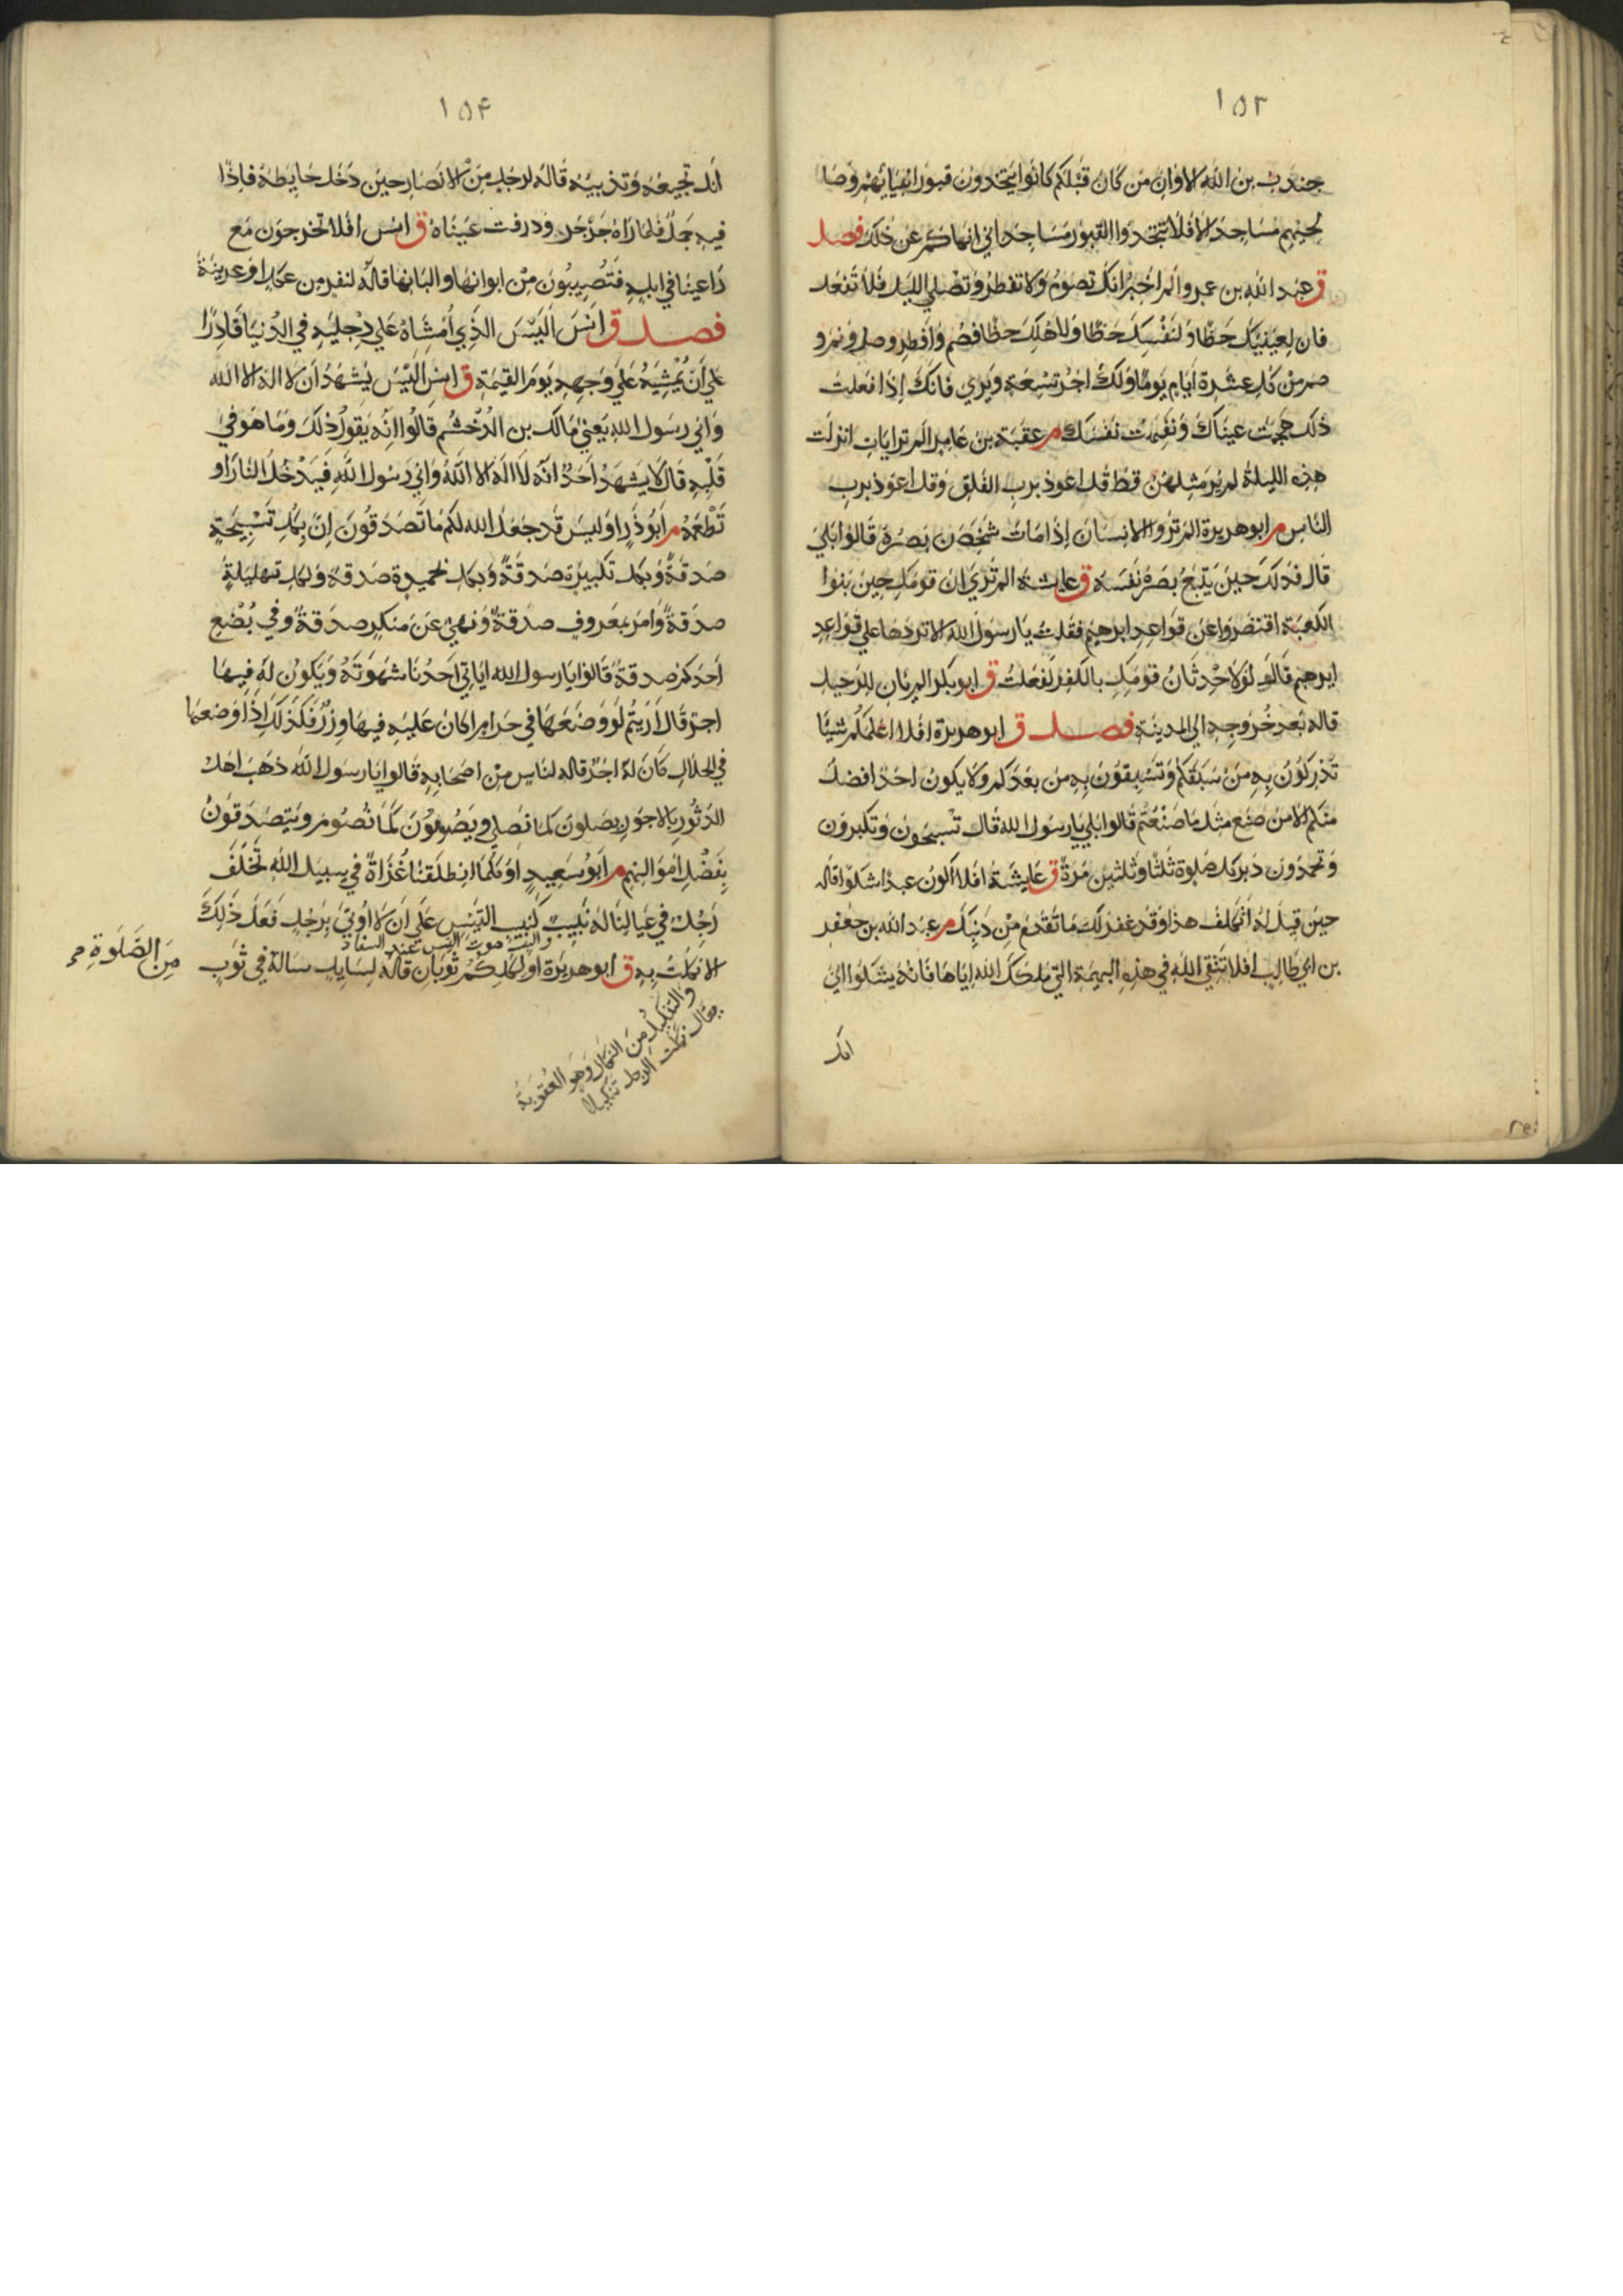 ١٥٣
جندب بن الله الاوان من كان قبلكم كانوا يتخذون قبور انبيائهم وصا
لحيهم مساجد الا فلا تتخذوا القبور مساجد اني انهاكم عن ذلك فصل
ق عبد الله بن عمرو الم اخبر انك تصوم ولا تفطر وتصلي الليل فلا تفعل
فان لعينيك حظا ولنفسك حظا ولاهلك حظا فصم وافطر وصل ونم و
صم من كل عشرة ايام يوما ولك اجر تسعة ويروي فانك اذا فعلت
ذلك هجمت عيناك ونفهت نفسك م عقبة بن عامر الم تر ايات انزلت
هذه الليلة لم ير مثلهن قط قل اعوذ برب الفلق وقل اعوذ برب
الناس م ابو هريرة الم تروا الانسان اذا مات شخص بصره قالوا بلي
قال فذلك حين يتبع بصره نفسه ق عايشة الم تري ان قومك حين بنوا
الكعبة اقتصروا عن قواعد ابرهيم فقلت يا رسول الله الا تردها علي قواعد
ابرهيم قال لولا حدثان قومك بالكفر لفعلت ق ابو بكر الم يان للرحيل
قاله بعد خروجه الي المدينة فصل ق ابو هريرة افلا اعلمكم شيئا
تدركون به من سبقكم وتسبقون به من بعدكم ولا يكون احد افضل
منكم الا من صنع مثل ما صنعتم قالوا بلي يا رسول الله قال تسبحون وتكبرون
وتحمدون دبر كل صلوة ثلثا وثلثين مرة ق عايشة افلا اكون عبدا شكورا قاله
حين قيل له اتكلف هذا وقد غفر لك ما تقدم من ذنبك م عبد الله بن جعفر
بن ابي طالب افلا تتقي الله في هذه البهيمة التي ملكك الله اياها فانه يشكوا الي
انك
١٥۴
انك تجيعه وتذيبه قاله لرجل من الانصار حين دخل حايطه فاذا
فيه جمل فلما راه جرجر وذرفت عيناه ق انس افلا تخرجون مع
راعينا في ابله فتصيبون من ابوالها والبانها قاله لنفر من عكل او عرينة
فصل ق انس اليس الذي امشاه علي رجليه في الدنيا قادرا
علي ان يمشيه علي وجهه يوم القيمة ق انس اليس يشهد ان لا اله الا الله
واني رسول الله يعني مالك بن الدخشم قالوا انه يقول ذلك وما هو في
قلبه قال لا يشهد احد انه لا اله الا الله واني رسول الله فيدخل النار او
تطعمه م ابو ذر اوليس قد جعل الله لكم ما تصدقون ان بكل تسبيحة
صدقة وبكل تكبيرة صدقة وبكل تحميدة صدقة ولكل تهليلة
صدقة وامر بمعروف صدقة ونهي عن منكر صدقة وفي بضع
احدكم صدقة قالوا يا رسول الله اياتي احدنا شهوته ويكون له فيها
اجر قال اريتم لو وضعها في حرام اكان عليه فيها وزر فكذلك اذا وضعها
في الحلال كان له اجر قاله لناس من اصحابه قالوا يا رسول الله ذهب اهل
الدثور بالاجور يصلون كما نصلي ويصومون كما نصوم ويتصدقون
بفضل اموالهم م ابو سعيد او كلما انطلقنا غزاة في سبيل الله تخلف
رجل في عيالنا له نبيب كنبيب التيس علي ان لا اوتي برجل فعل ذلك
والنبيب صوت التيس عند السفاد
الا نكلت به ق ابو هريرة او لكلكم ثوبان قاله لسايل ساله في ثوب
من الصلوة
والتنكيل من النكال وهو العقوبة
يقال نكلت الرجل تنكيلا